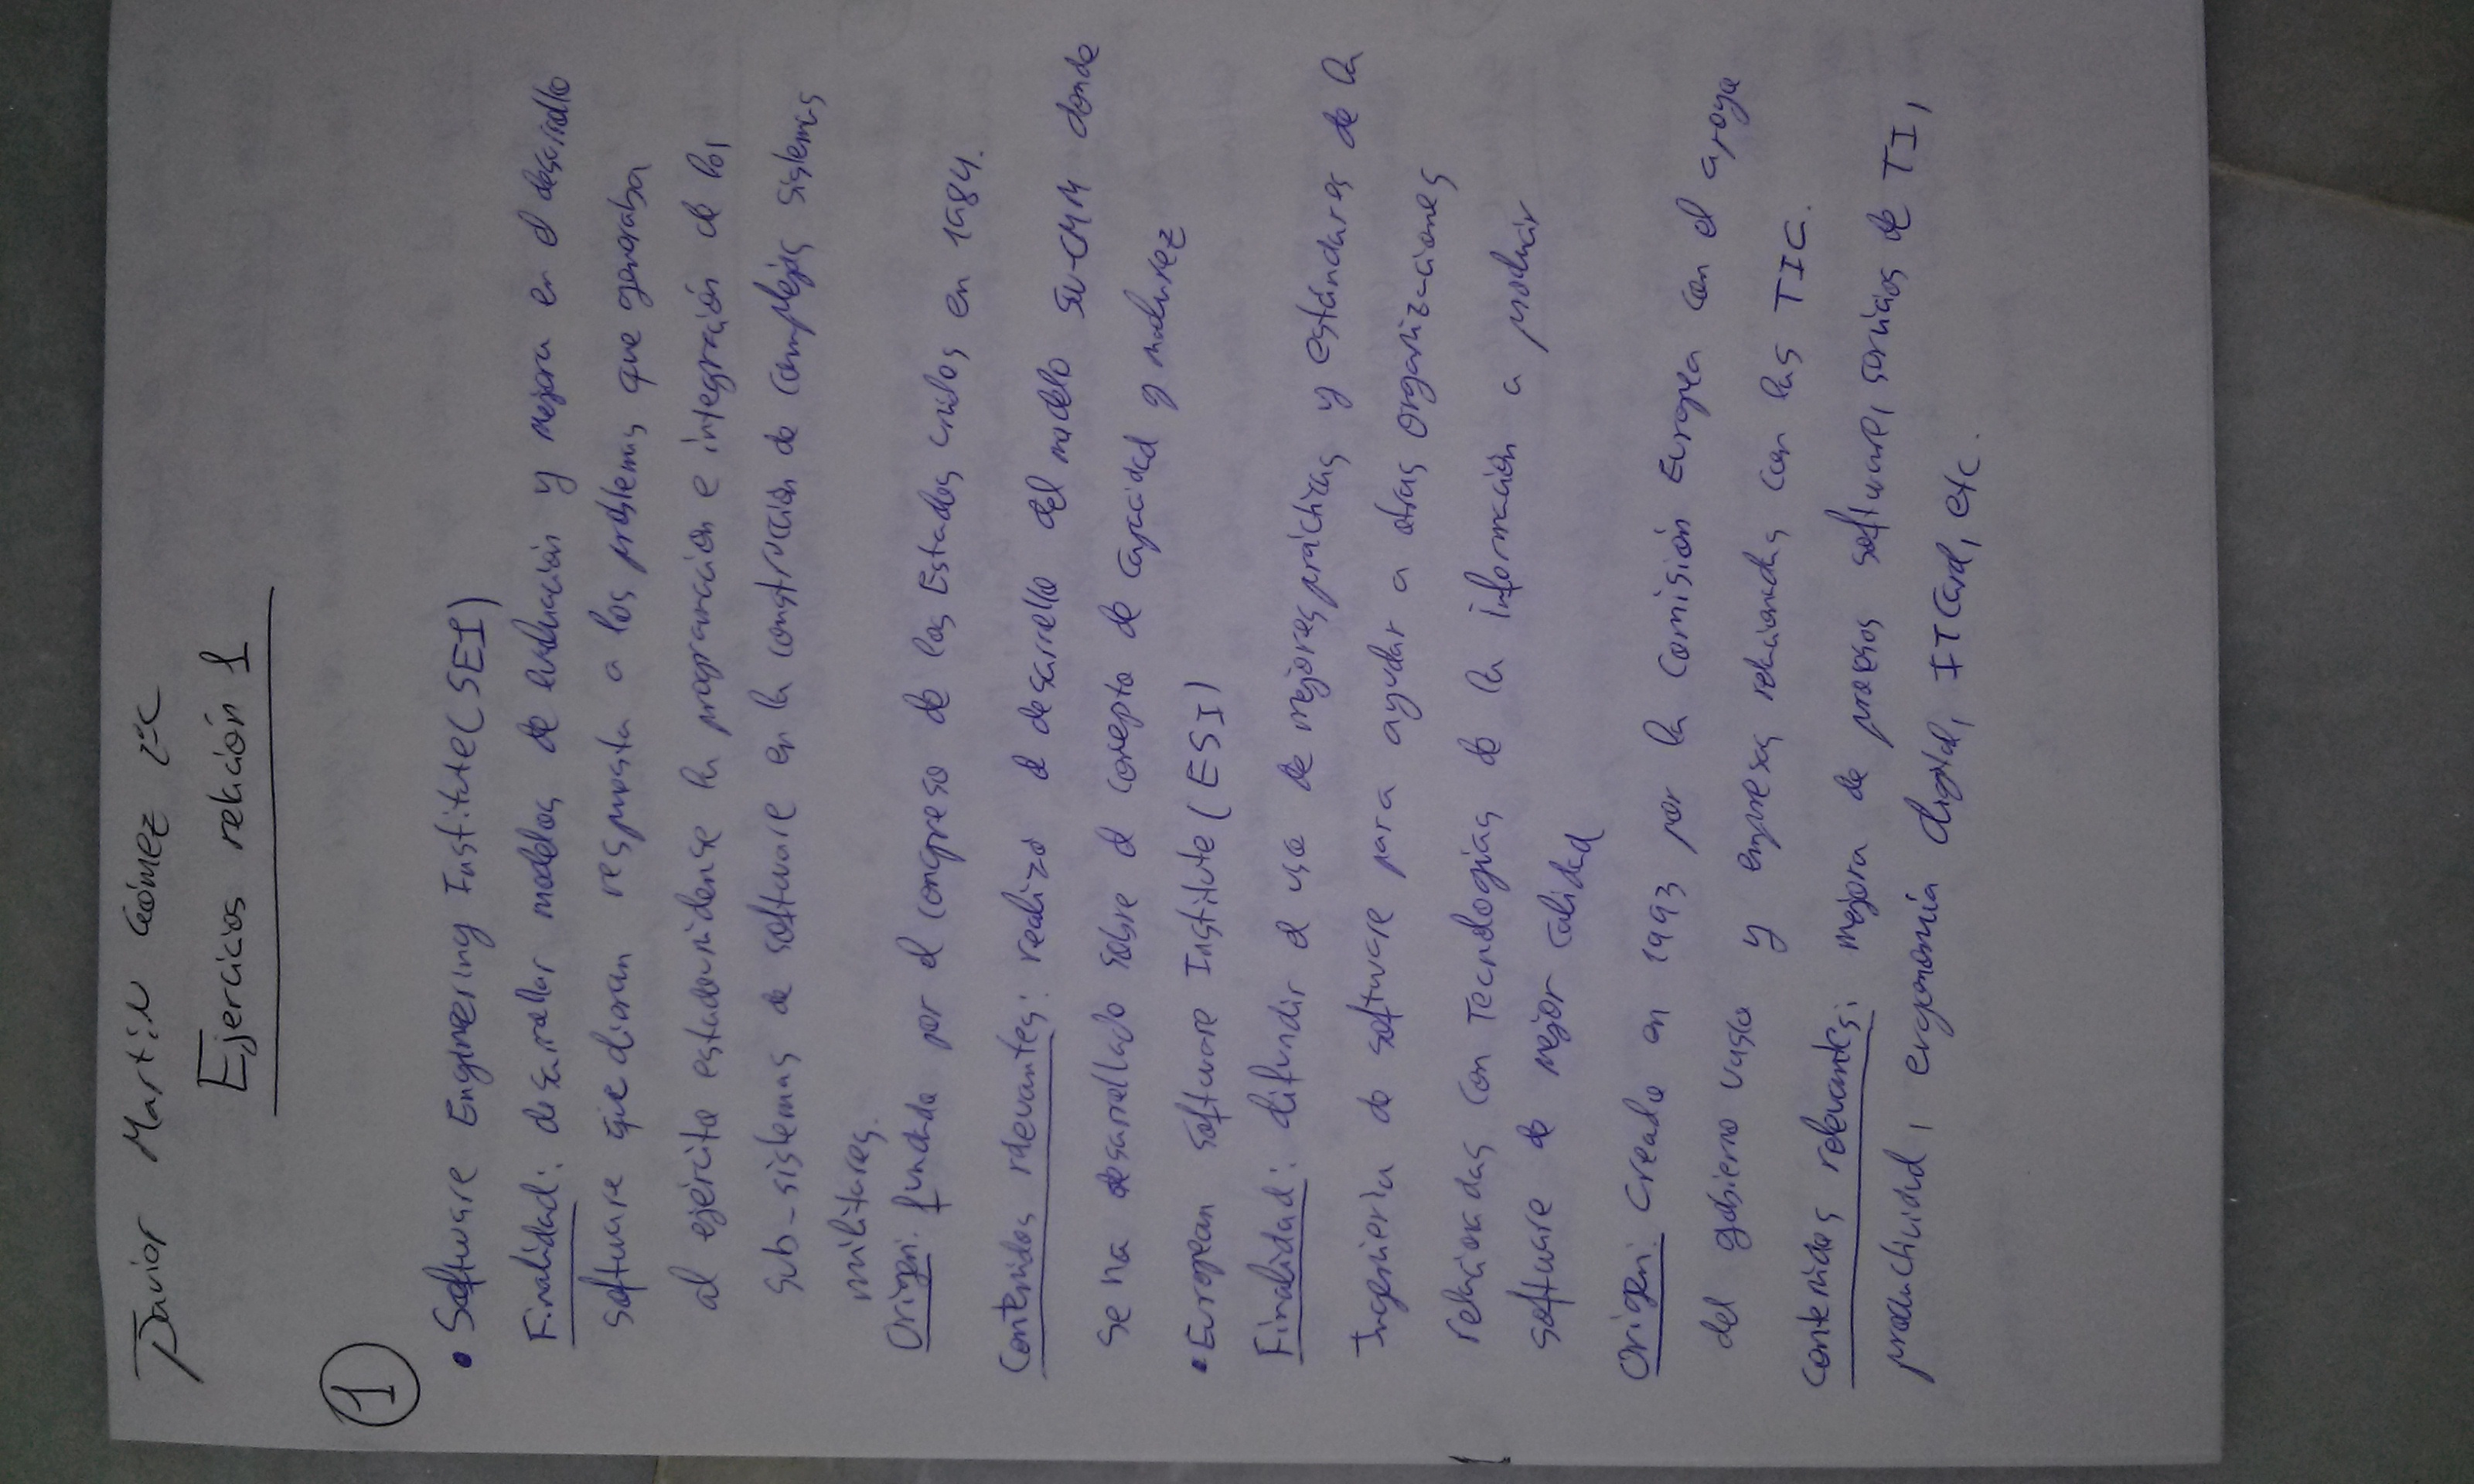 Javier Martín Gómez 2ºC
Ejercicios relación 1
1
• Software Engineering Institute (SEI)
Finalidad: desarrollar modelos de evaluación y mejora en el desarrollo
software que dieran respuesta a los problemas que generaba
al ejército estadounidense la programación e integración de los
sub-sistemas de software en la construcción de complejos sistemas
militares.
Origen: fundada por el congreso de los Estados unidos en 1984.
Contenidos relevantes: realizó el desarrollo del modelo SW-CMM donde
se ha desarrollado sobre el concepto de capacidad y madurez
• European Software Institute (ESI)
Finalidad: difundir el uso de mejores prácticas y estándares de la
Ingeniería de software para ayudar a otras organizaciones
relacionadas con Tecnologías de la información a producir
software de mejor calidad
Origen: Creado en 1993 por la Comisión Europea con el apoyo
del gobierno vasco y empresas relacionadas con las TIC.
Contenidos relevantes: mejora de procesos software, servicios de TI,
productividad, ergonomía digital, ITCard, etc.